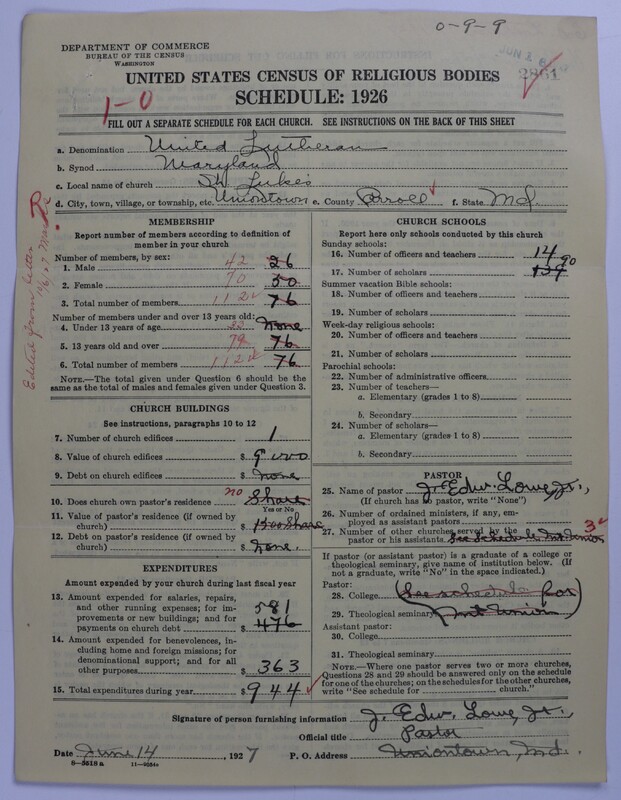 0-9-9
DEPARTMENT OF COMMERCE
BUREAU OF THE CENSUS
WASHINGTON
JUN 2 8
2861
UNITED STATES CENSUS OF RELIGIOUS BODIES
SCHEDULE: 1926
1-0
FILL OUT A SEPARATE SCHEDULE FOR EACH CHURCH. SEE INSTRUCTIONS ON THE BACK OF THIS SHEET
a. Denomination United Lutheran
b. Synod Maryland
c. Local name of church St. Luke's
d. City, town, village, or township, etc. Uniontown e. County Carroll f. State Md.
Edited from letter
MEMBERSHIP
Report number of members according to definition of
member in your church
Number of members, by sex:
1. Male 42 26
2. Female 70 50
3. Total number of members 112 76
Number of members under and over 13 years old:
4. Under 13 years of age None
5. 13 years old and over 79 76
6. Total number of members 112 76
NOTE.—The total given under Question 6 should be the
same as the total of males and females given under Question 3.
CHURCH BUILDINGS
See instructions, paragraphs 10 to 12
7. Number of church edifices 1
8. Value of church edifices $ 9000
9. Debt on church edifices $ none
10. Does church own pastor's residence no Share
Yes or No
11. Value of pastor's residence (if owned by
church) $ 1500 Share
12. Debt on pastor's residence (if owned by
church) $ none.
EXPENDITURES
Amount expended by your church during last fiscal year
13. Amount expended for salaries, repairs,
and other running expenses; for im-
provements or new buildings; and for
payments on church debt $ 581 476
14. Amount expended for benevolences, in-
cluding home and foreign missions; for
denominational support; and for all
other purposes $ 363
15. Total expenditures during year $ 944
CHURCH SCHOOLS
Report here only schools conducted by this church
Sunday schools:
16. Number of officers and teachers 14
17. Number of scholars 139 90
Summer vacation Bible schools:
18. Number of officers and teachers
19. Number of scholars
Week-day religious schools:
20. Number of officers and teachers
21. Number of scholars
Parochial schools:
22. Number of administrative officers
23. Number of teachers—
a. Elementary (grades 1 to 8)
b. Secondary
24. Number of scholars—
a. Elementary (grades 1 to 8)
b. Secondary
PASTOR
25. Name of pastor J. Edw. Lowe, Jr.,
(If church has no pastor, write "None")
26. Number of ordained ministers, if any, em-
ployed as assistant pastors
27. Number of other churches served by the
pastor or his assistants See Schedule Mt. Union 3
If pastor (or assistant pastor) is a graduate of a college or
theological seminary, give name of institution below. (If
not a graduate, write "No" in the space indicated.)
Pastor:
28. College (See schedule for
29. Theological seminary Mt Union)
Assistant pastor:
30. College
31. Theological seminary
NOTE.—Where one pastor serves two or more churches,
Questions 28 and 29 should be answered only on the schedule
for one of the churches; on the schedules for the other churches,
write "See schedule for ______ church."
Signature of person furnishing information J. Edw. Lowe, Jr.,
Official title Pastor
Date June 14, 1927 P. O. Address Uniontown, Md.
8-3518 a 11-9584a